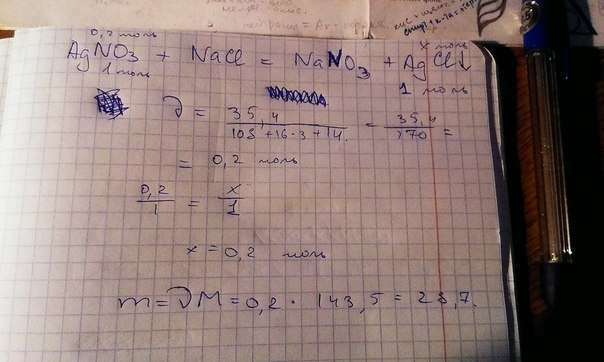 0,2 моль
x моль
AgNO3 + NaCl = NaNO3 + AgCl↓
1 моль
1 моль
ν = 35,4 / 108+16·3+14 = 35,4 / 170 =
= 0,2 моль
0,2 / 1 = x / 1
x = 0,2 моль
m = νM = 0,2 · 143,5 = 28,7.